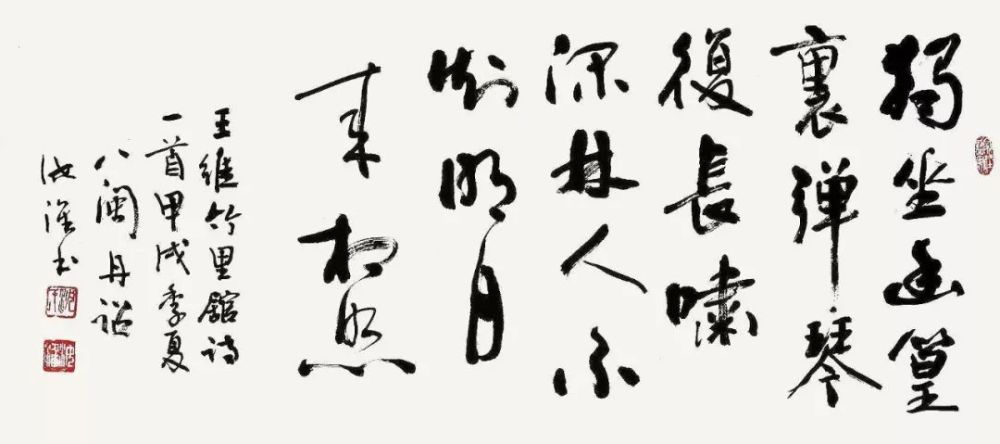 獨坐幽篁
裏弹琴
復長嘯
深林人不
知明月
来相照
王維竹里館詩
一首甲戌季夏
八閩丹詔
汝淮书